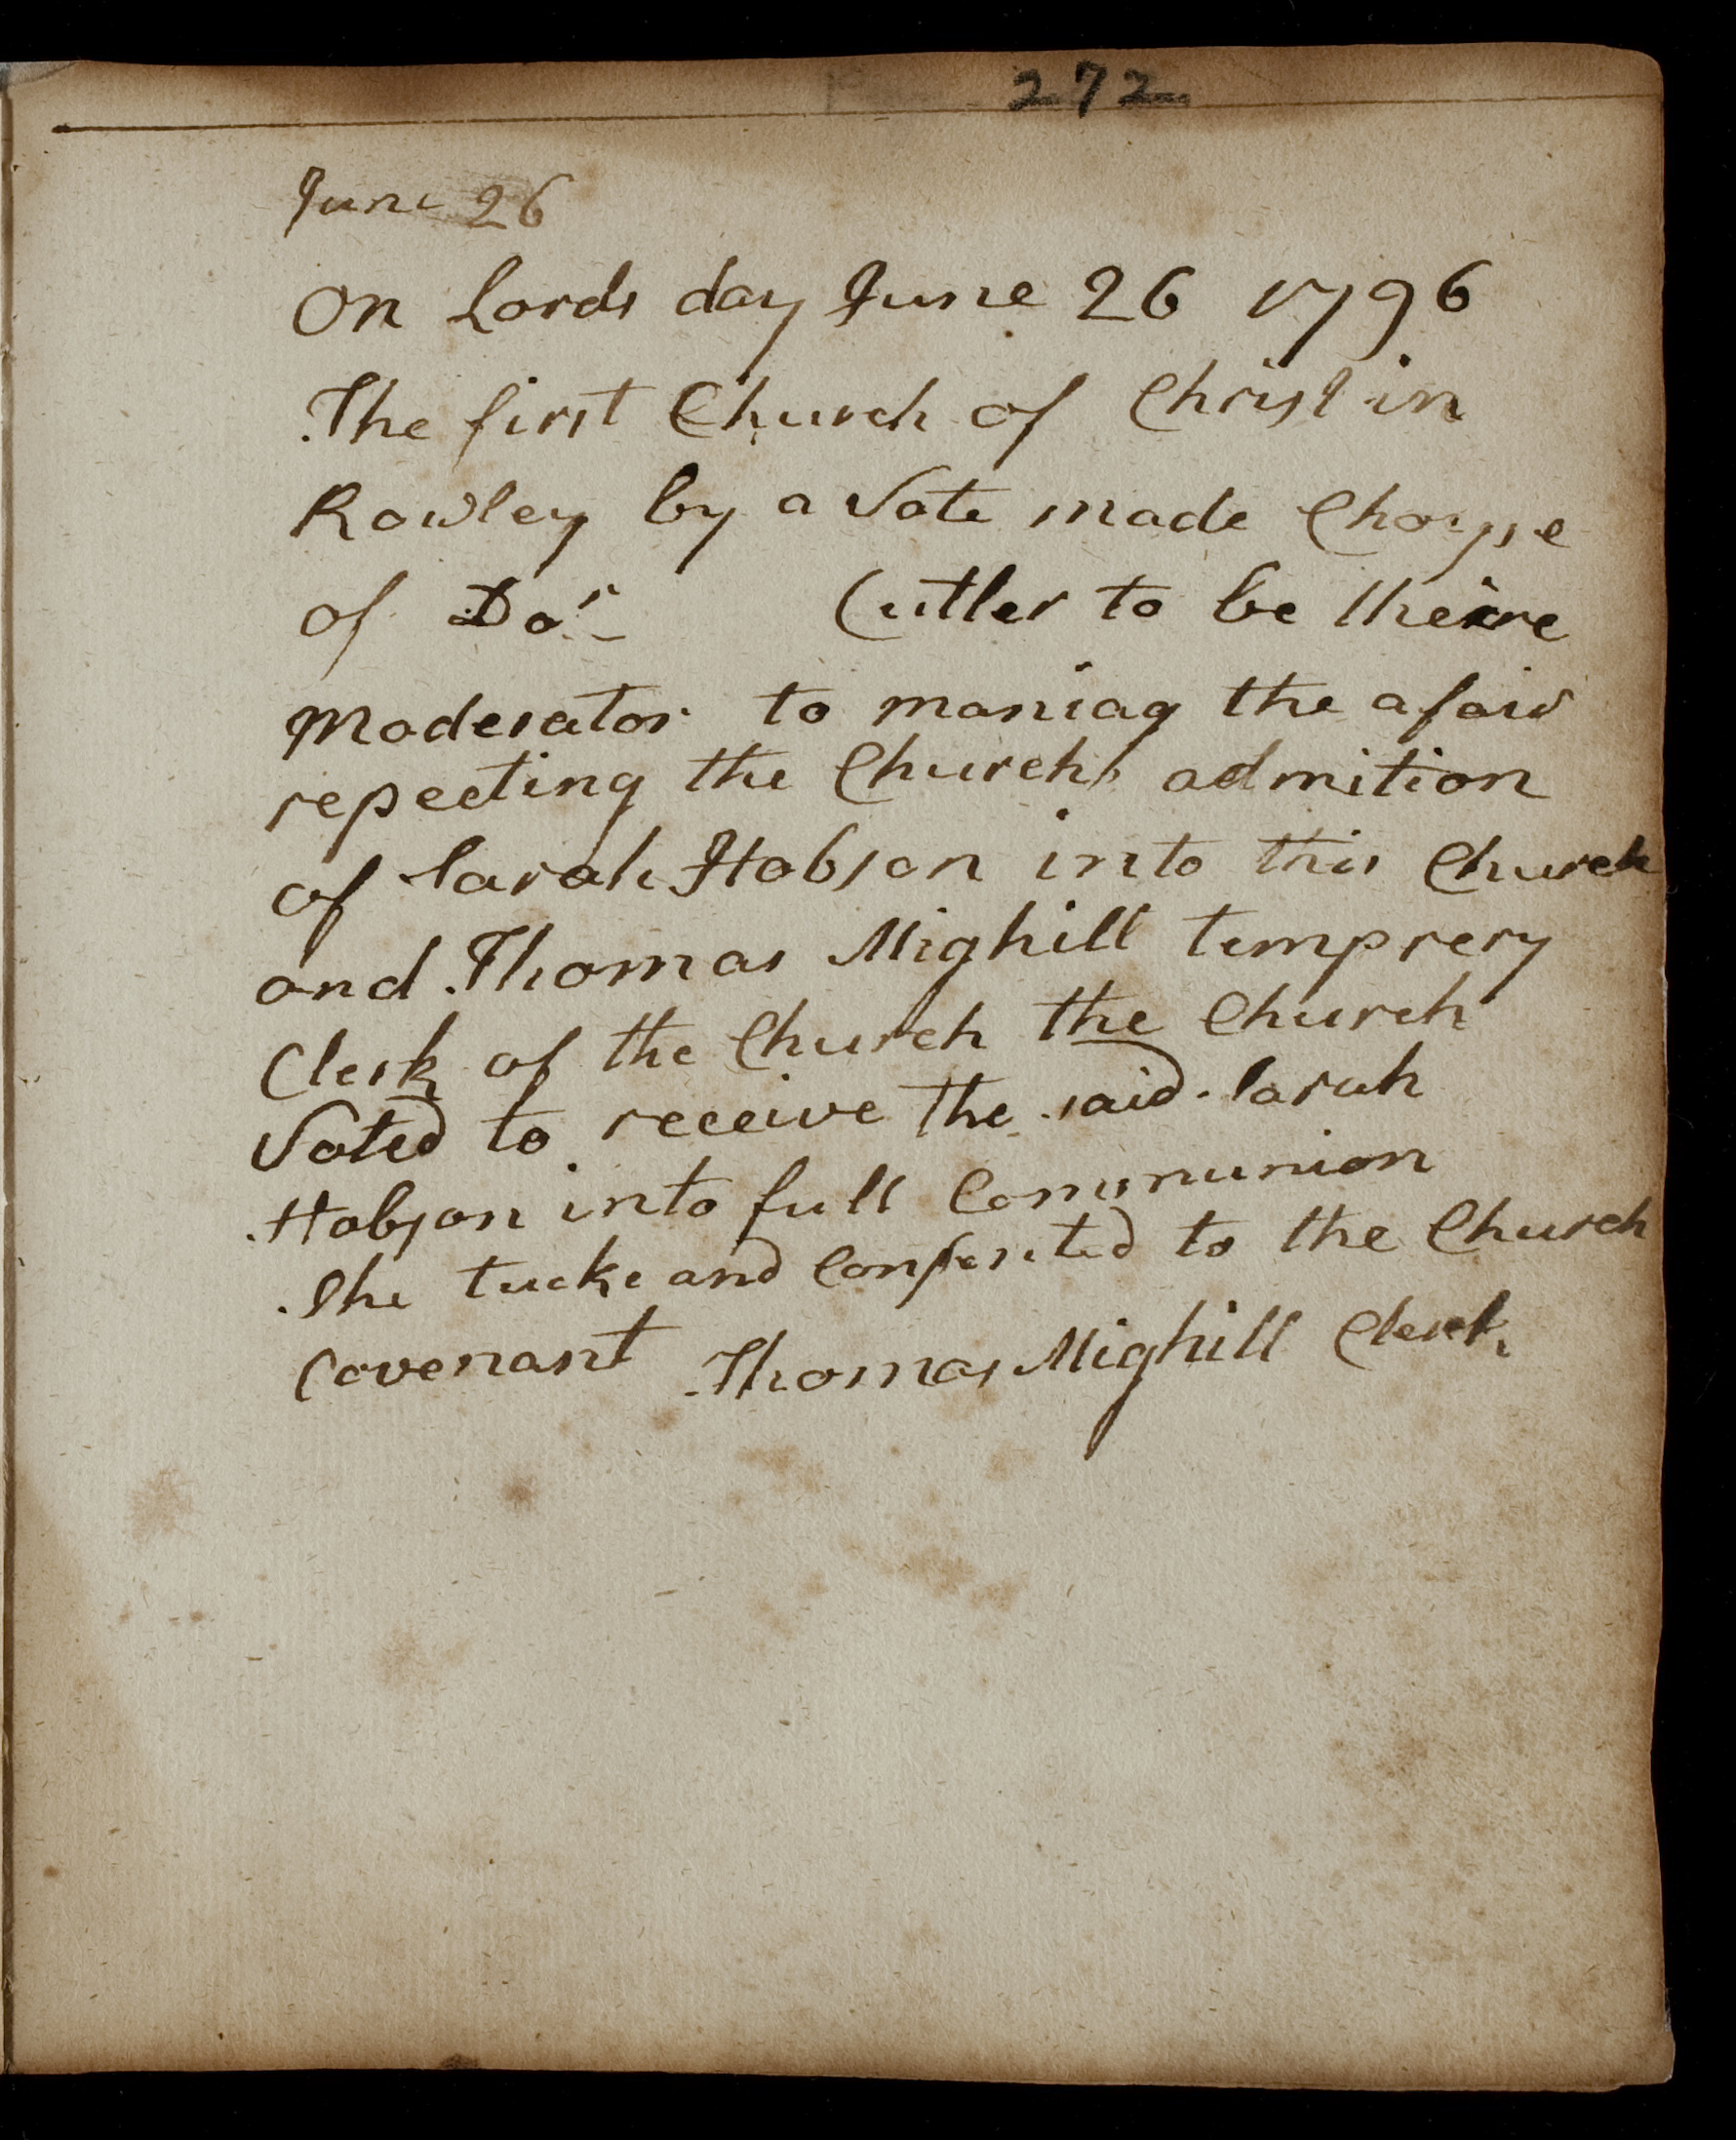 272
June 26
On Lords day June 26 1796
The first Church of Christ in
Rowley by a Vote made Choyse
of Do.r Cutler to be theire
Moderator to maniag the afair
repecting the Churchs admition
of Sarah Hobson into this Church
and Thomas Mighill temprery
Clerk of the Church the Church
Voted to receive the said Sarah
Hobson into full Communion
She tucke and Consented to the Church
Covenant Thomas Mighill Clerk